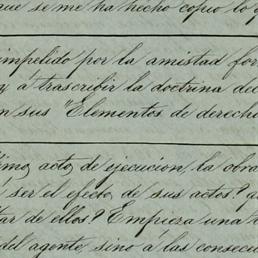 que se me ha hecho copio lo q
impelido por la amistad for
y á trascribir la doctrina de
n sus "Elementos de derech
imo, acto, de ejecucion, la obra
ser el efecto, de sus actos?
tar de ellos? Empieza una
del agente, sino a las consecu